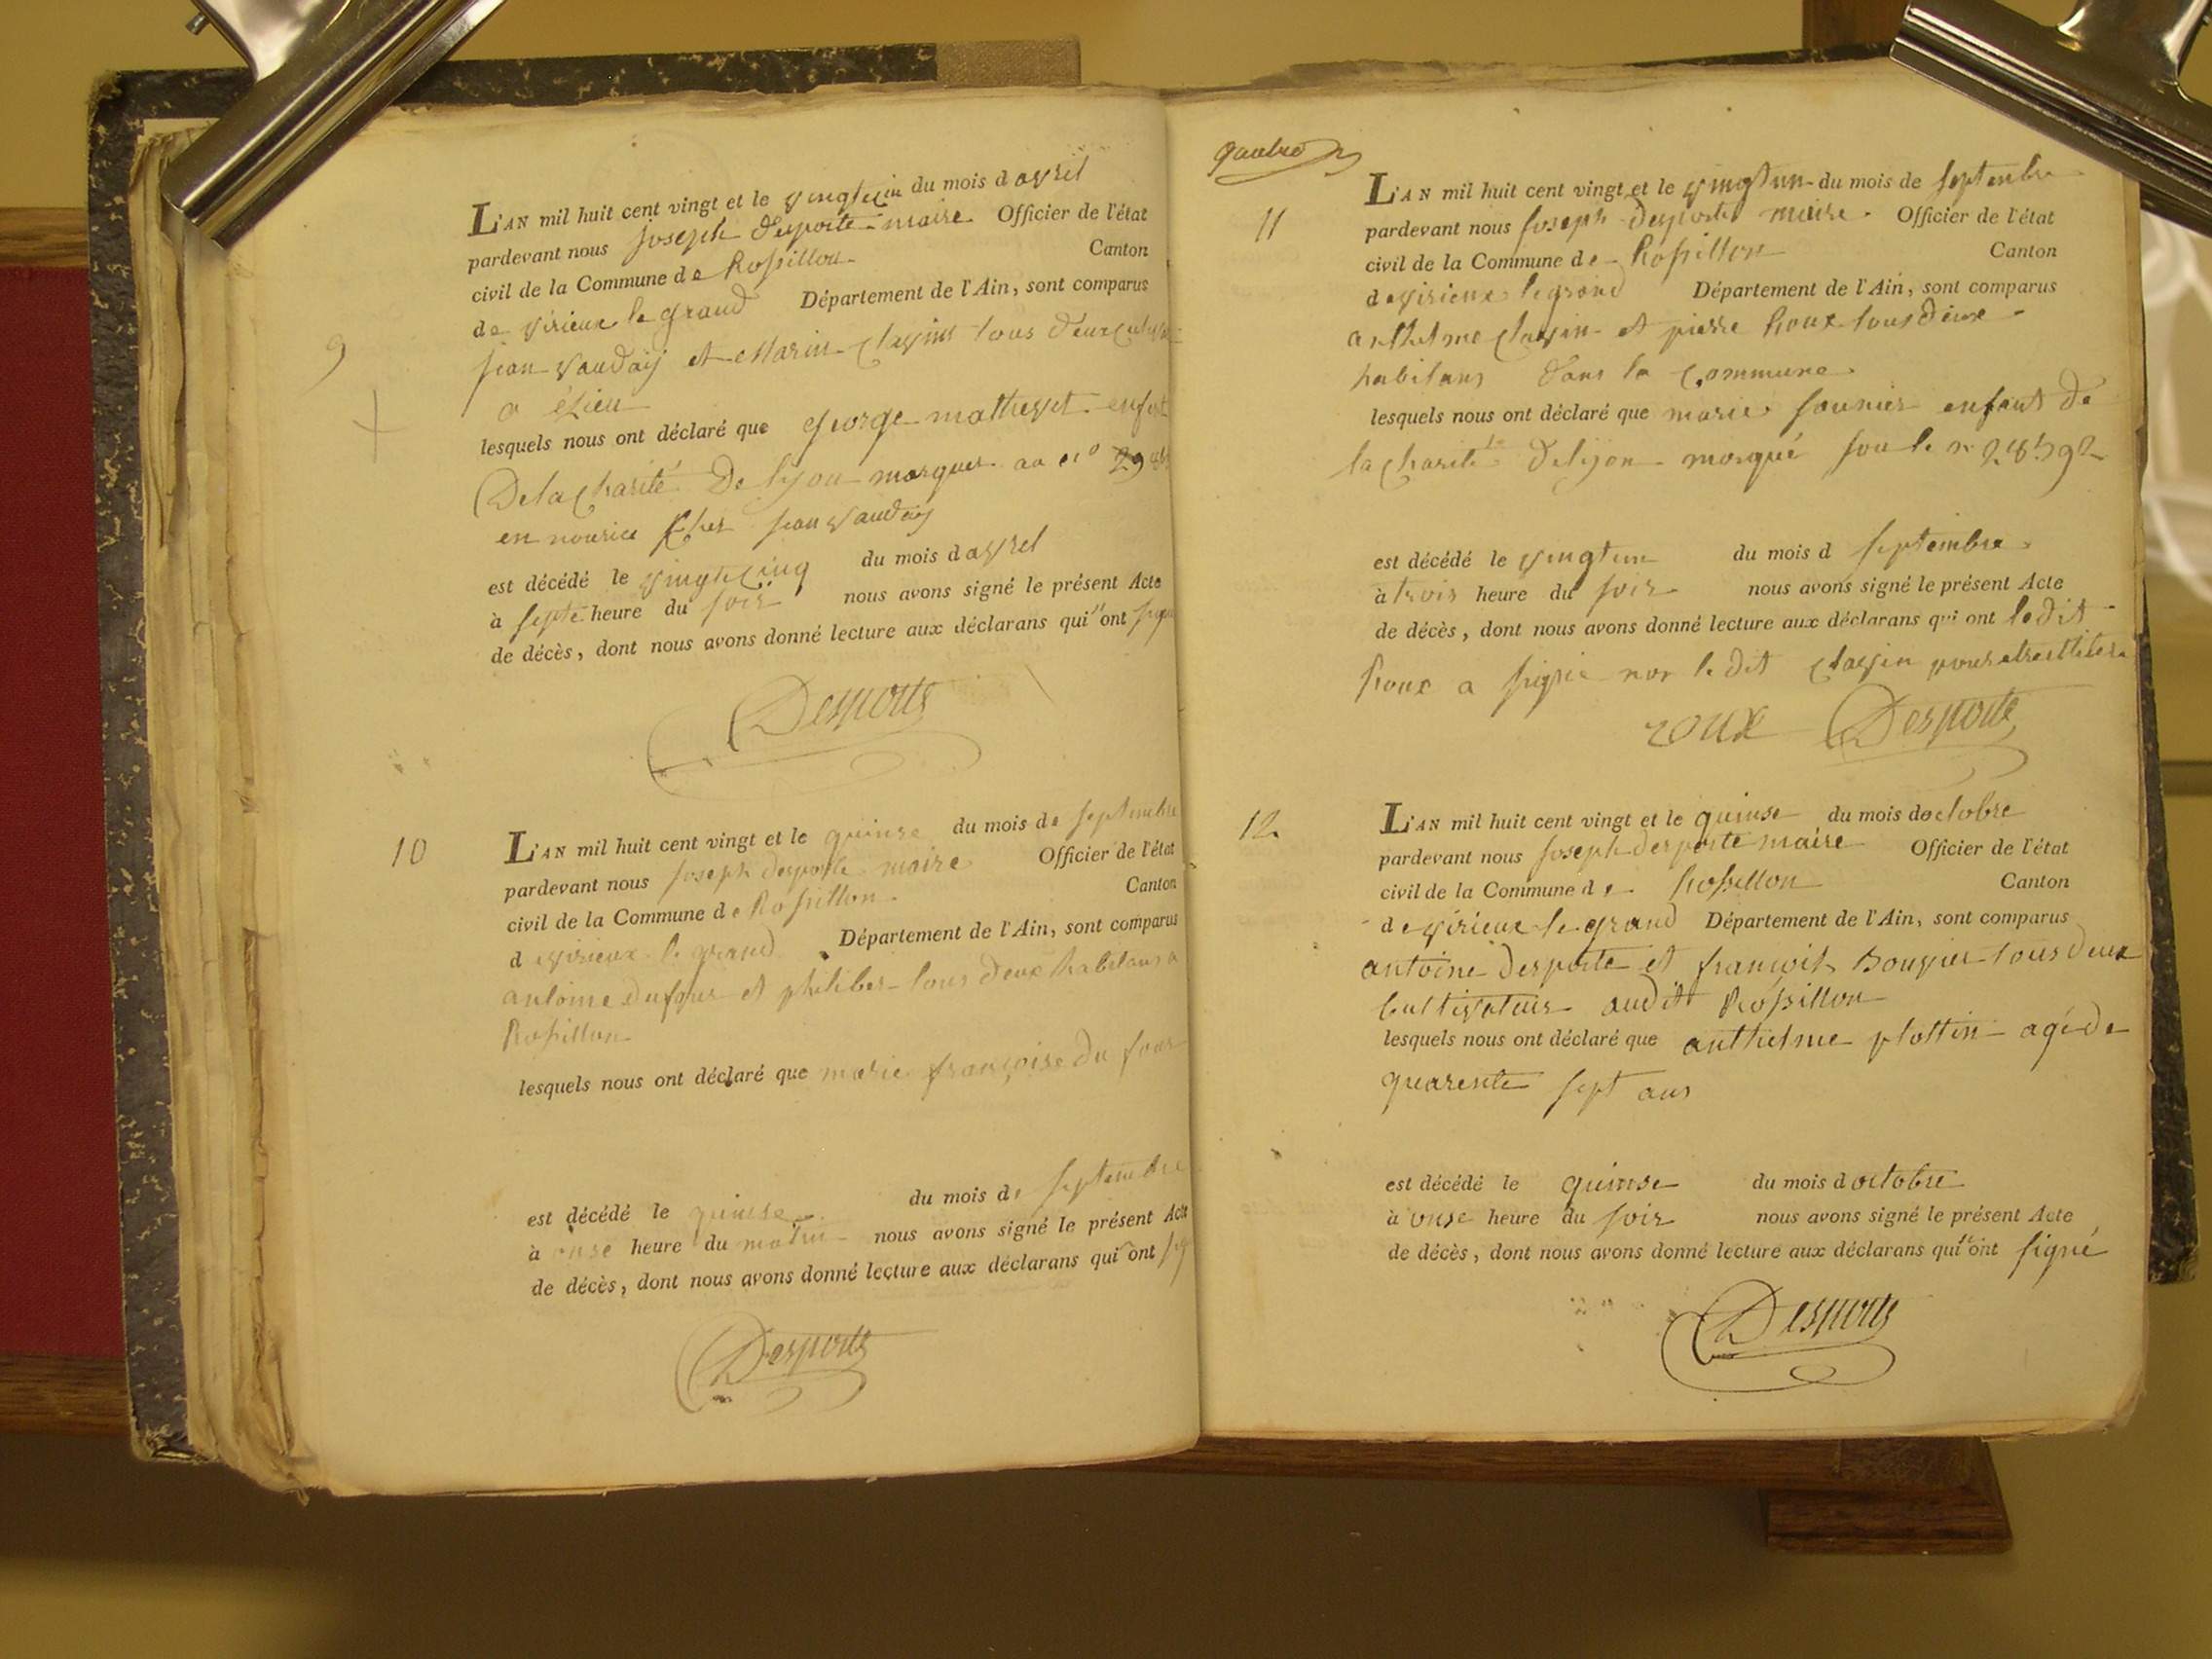 9
L'AN mil huit cent vingt et le vingtcin du mois d avril
pardevant nous joseph desporte maire Officier de l'état
civil de la Commune de Rossillon Canton
de virieux le grand Département de l'Ain, sont comparus
jean vauday et Marin clavin tous deux
a
lesquels nous ont déclaré que george enfant
De la charité De lyon marquer au n°
en nourice chez jean vauday
est décédé le vingtcinq du mois d avrel
à septe heure du soir nous avons signé le présent Acte
de décès, dont nous avons donné lecture aux déclarans qui ont signé
Desporte
10
L'AN mil huit cent vingt et le quinse du mois de septembre
pardevant nous joseph desporte maire Officier de l'état
civil de la Commune de Rossillon Canton
d evirieux le grand Département de l'Ain, sont comparus
antoine dufour et philiber tous deux habitans a
Rossillon
lesquels nous ont déclaré que marie françoise du four
est décédé le quinse du mois de septembre
à onse heure du matin nous avons signé le présent Acte
de décès, dont nous avons donné lecture aux déclarans qui ont
Desporte
11
L'AN mil huit cent vingt et le vingtun du mois de septembre
pardevant nous joseph desporte maire Officier de l'état
civil de la Commune de Rossillon Canton
d evirieux legrand Département de l'Ain, sont comparus
anthelme clavin et pierre Roux tous deux
habitans dans la Commune
lesquels nous ont déclaré que marie enfant de
la charité de lyon marqué sou le n 28592
est décédé le vingtun du mois d septembre
à trois heure du soir nous avons signé le présent Acte
de décès, dont nous avons donné lecture aux déclarans qui ont ledit
Roux a signé non le dit clavin
roux Desporte
12
L'AN mil huit cent vingt et le quinse du mois doctobre
pardevant nous joseph desporte maire Officier de l'état
civil de la Commune de Rossillon Canton
d evirieux le grand Département de l'Ain, sont comparus
antoine desporte et françois bouvier tous deux
cultivateurs audit Rossillon
lesquels nous ont déclaré que anthelme plottin agé de
quarente sept ans
est décédé le quinse du mois d octobre
à onse heure du soir nous avons signé le présent Acte
de décès, dont nous avons donné lecture aux déclarans qui ont signé
Desporte